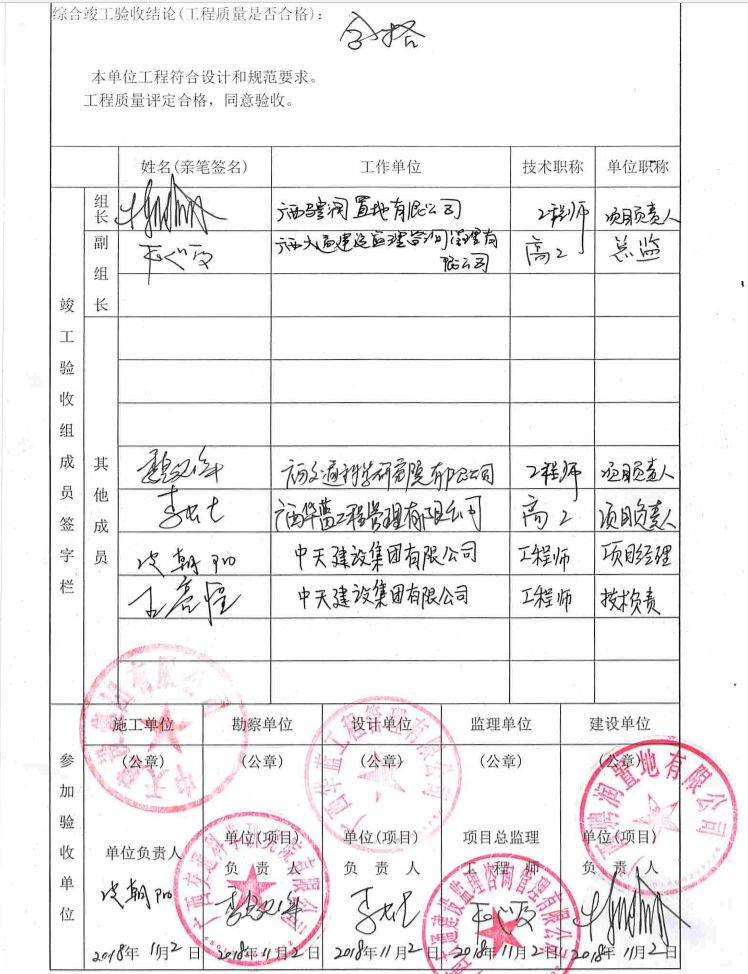 综合竣工验收结论(工程质量是否合格):
合格
本单位工程符合设计和规范要求。
工程质量评定合格，同意验收。
姓名(亲笔签名) 工作单位 技术职称 单位职称
竣工验收组成员签字栏
组长 置地有限公司 工程师 项目负责人
副组长 广西大通建设监理咨询管理有
限公司 高工 总监
其他成员
广西交通科学研究院有限公司 工程师 项目负责人
广西华蓝工程管理有限公司 高工 项目负责人
皮朝阳 中天建设集团有限公司 工程师 项目经理
中天建设集团有限公司 工程师 技术负责
参加验收单位
施工单位 勘察单位 设计单位 监理单位 建设单位
(公章) (公章) (公章) (公章) (公章)
单位负责人 单位(项目) 单位(项目) 项目总监理 单位(项目)
负责人 负责人 工程师 负责人
皮朝阳
2018年11月2日 2018年11月2日 2018年11月2日 2018年11月2日 2018年11月2日